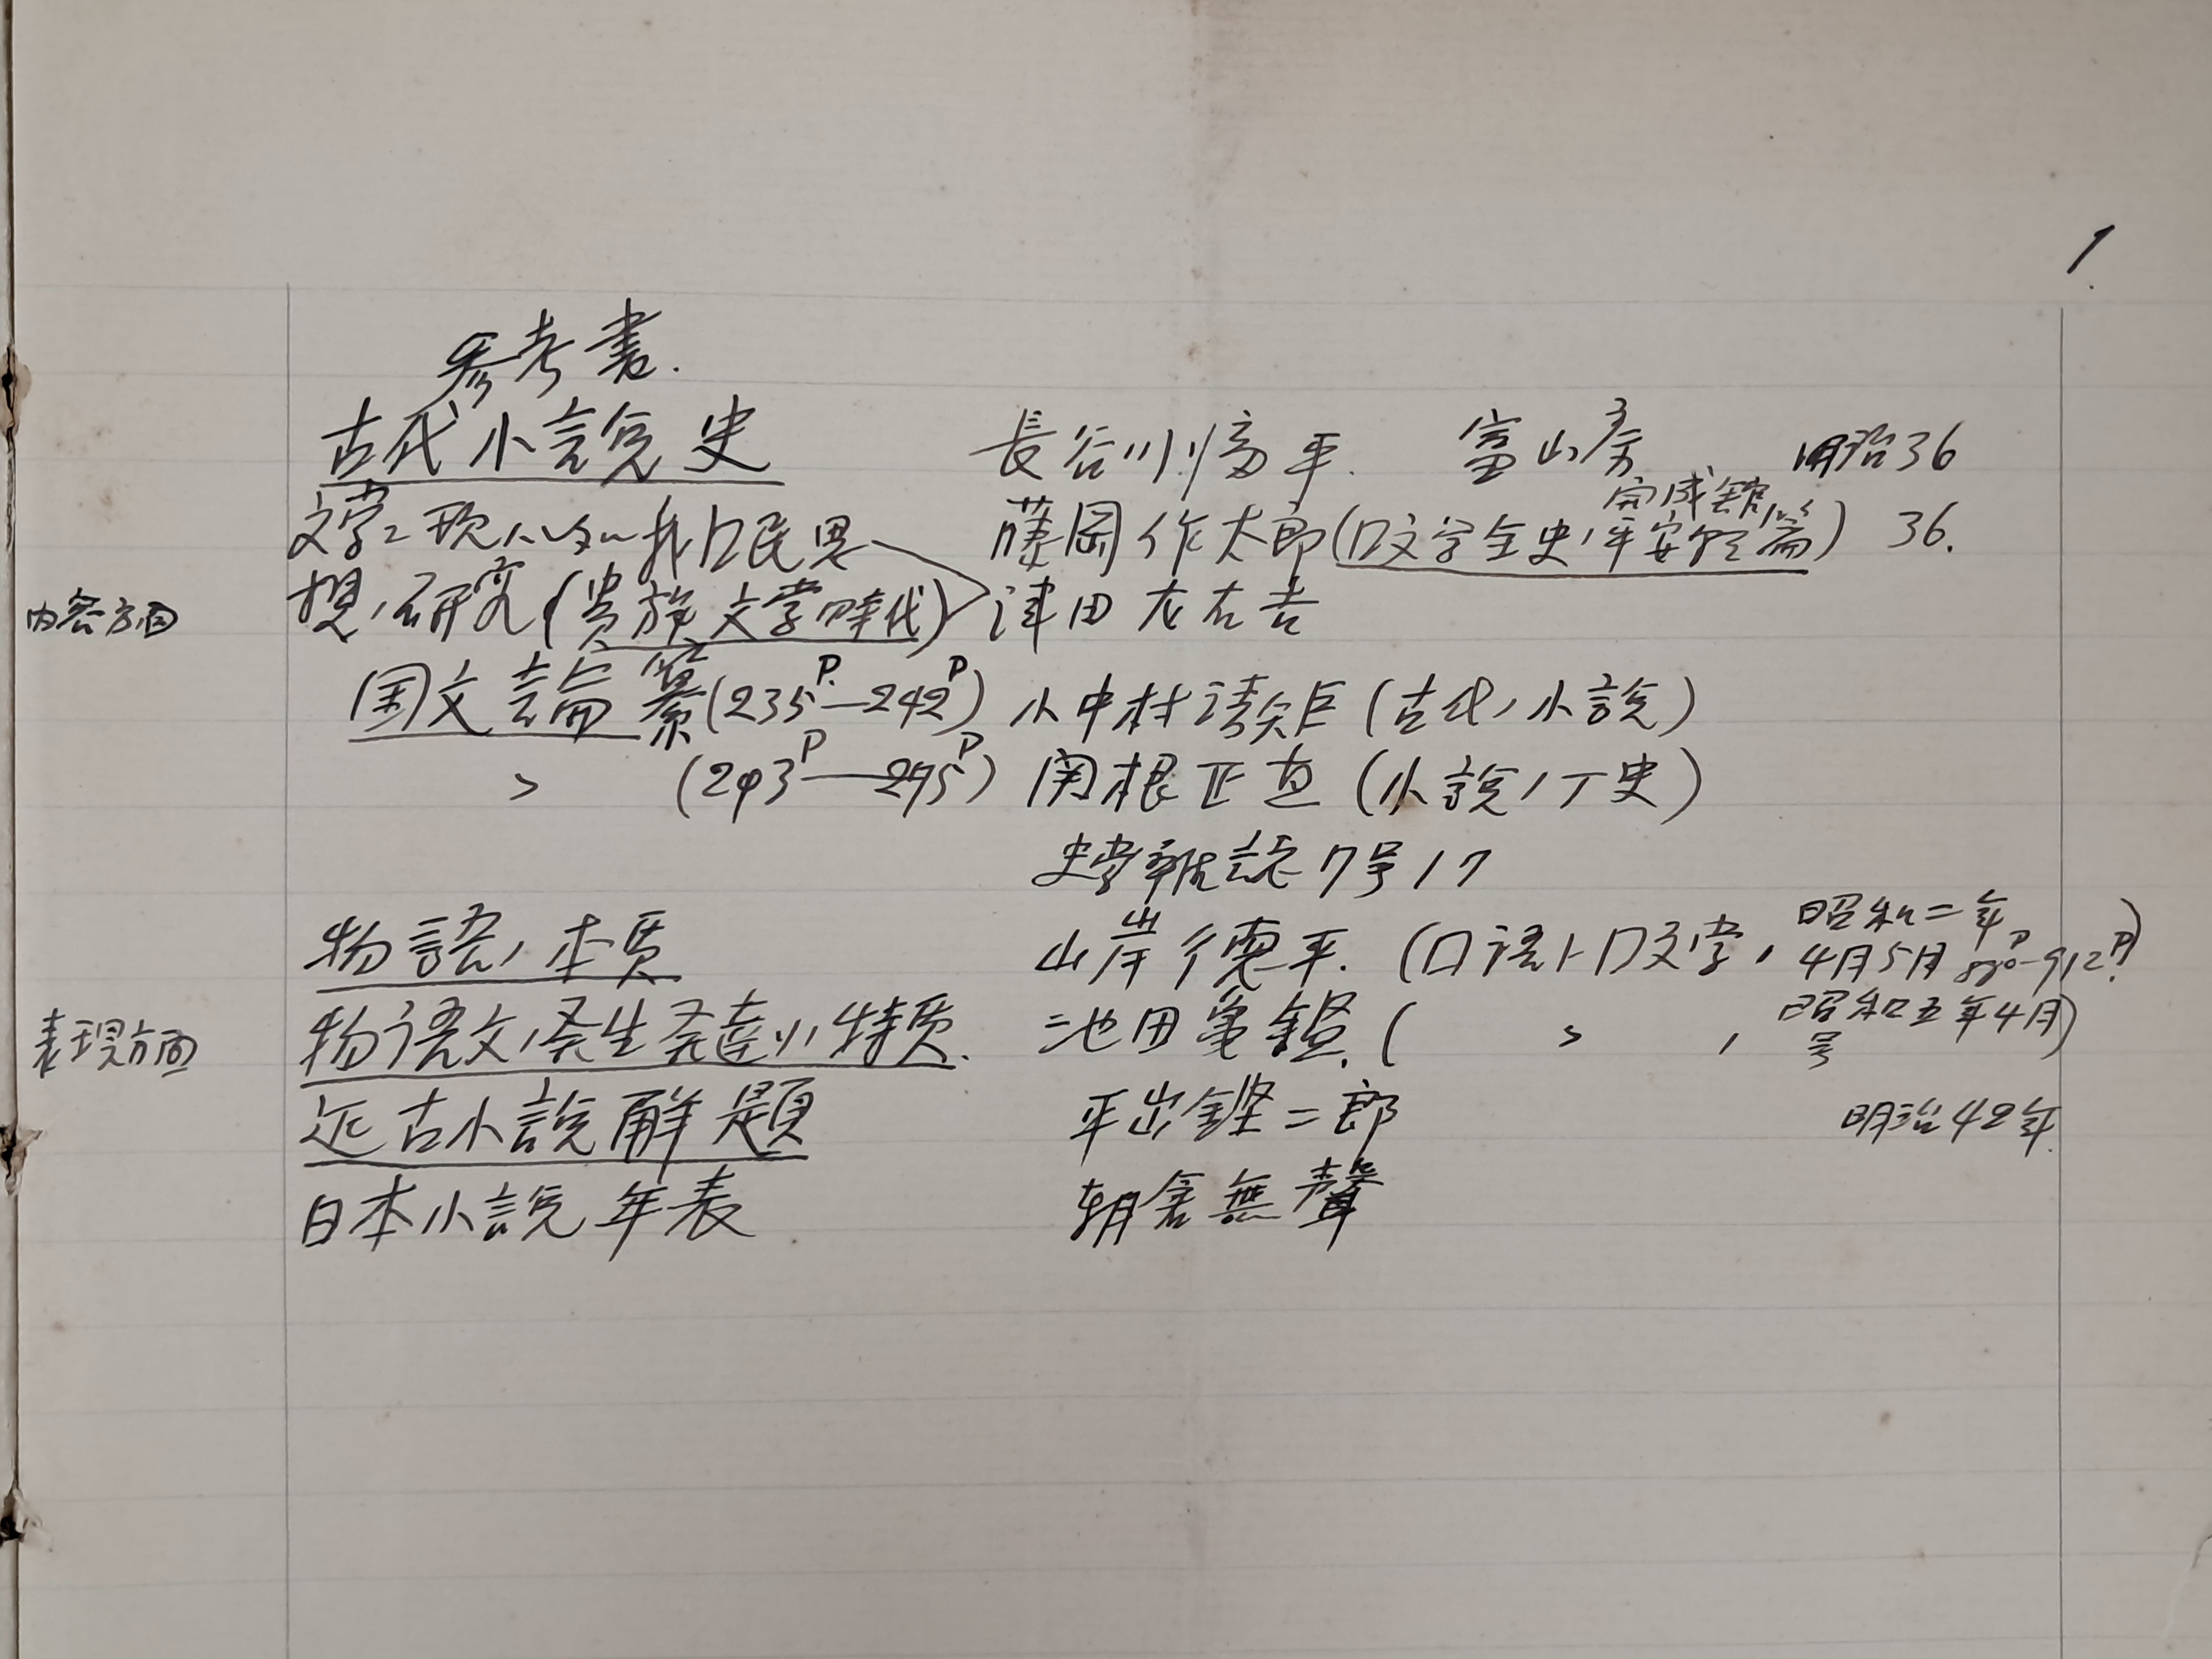 1.
参考書.
古代小説史 長谷川福平. 富山房 明治36
完成館
文学ニ現ハレタル我口民思 藤岡作太郎(口文学全史ノ平安朝篇) 36.
内容方面 想ノ研究(貴族文学時代) 津田左右吉
国文論纂(235P.—242P) 小中村清矩(古代ノ小説)
〃 (243P—275P) 関根正直(小説ノ丁史)
史学雑誌7号17
物語ノ本質 山岸徳平.(口語ト口文学, 昭和二年
4月5月 880P—912P.)
表現方面 物語文ノ発生発達ソノ特質. 池田亀鑑.( 〃 , 昭和五年4月
号)
近古小説解題 平出鏗二郎 明治42年.
日本小説年表. 朝倉無聲